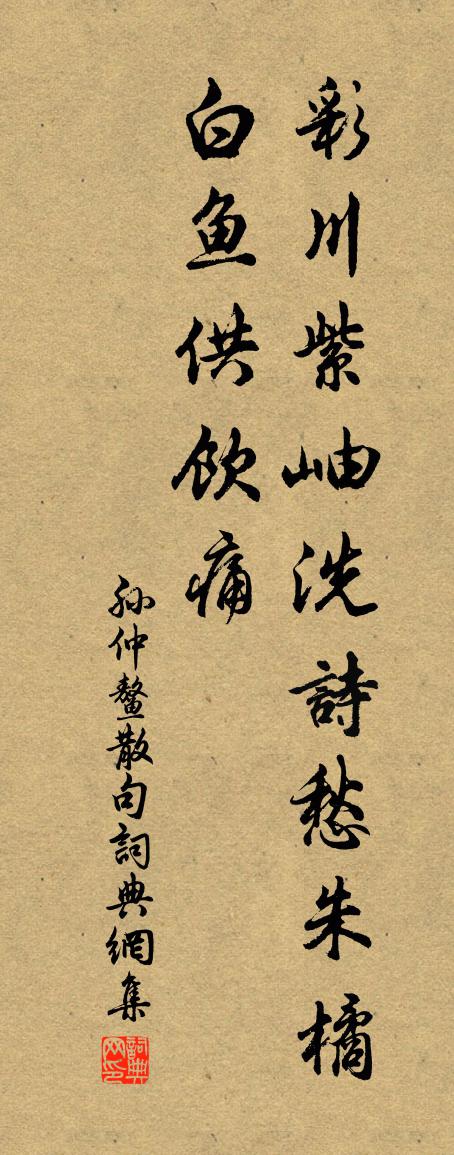 彩川紫岫洗詩愁朱橘
白鱼供飲痛
孙仲鳌散句詞典網集
詞典
网印